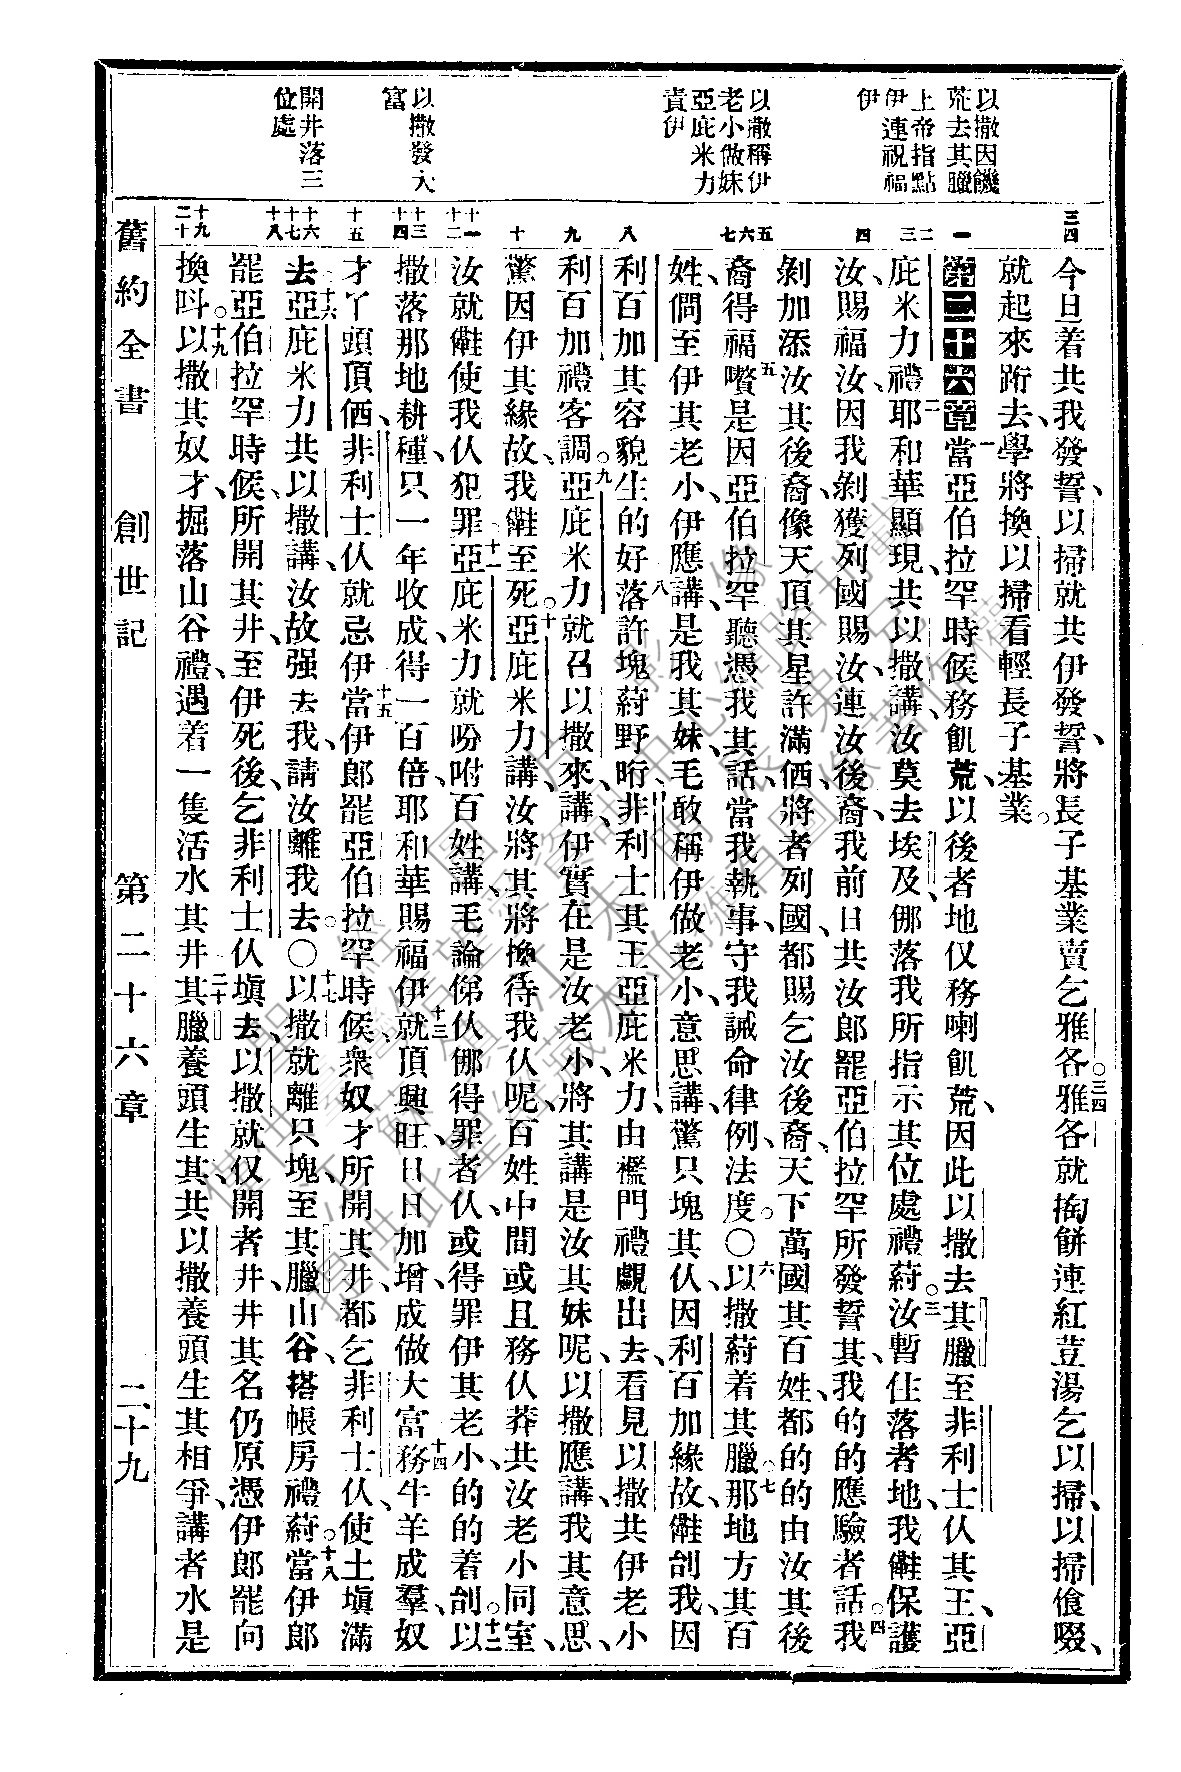 以撒因饑
荒去其臘
上帝指點
伊連祝福
伊
以撒稱伊
老小做妹
亞庇米力
責伊
以撒發大
富
開井落三
位處
三四
一
二三
四
五六七
八
九
十
十一十二
十三十四
十五
十六十七十八
十九二十
今日着共我發誓、以掃就共伊發誓、將長子基業賣乞雅各。三四雅各就掏餅連紅荳湯乞以掃、以掃食啜、
就起來跨去、學將換以掃看輕長子基業。
第二十六章 一當亞伯拉罕時候務飢荒、以後者地仅務喇飢荒、因此以撒去其臘至非利士仅其王、亞
庇米力禮。二耶和華顯現共以撒講、汝莫去埃及、㑚落我所指示其位處禮蒔。三汝暫住落者地、我𠆧保護
汝、賜福汝、因我剝獲列國賜汝連汝後裔、我前日共汝郎罷亞伯拉罕所發誓其、我的的應驗者話。四我
剝加添汝其後裔、像天頂其星許滿、𠆧將者列國都賜乞汝後裔、天下萬國其百姓、都的的由汝其後
裔得福。五嚽是因亞伯拉罕聽憑我其話、當我執事、守我誡命律例法度。○六以撒蒔着其臘。七那地方其百
姓、問至伊其老小、伊應講、是我其妹、毛敢稱伊做老小、意思講、驚只塊其仅因利百加緣故、𠆧刣我、因
利百加其容貌生的好。八落許塊蒔野𥅽、非利士其王亞庇米力、由檻門禮覷出去、看見以撒共伊老小
利百加禮客調。九亞庇米力就召以撒來講、伊實在是汝老小、將其講是汝其妹呢、以撒應講、我其意思、
驚因伊其緣故、我𠆧至死。十亞庇米力講、汝將其將換待我仅呢、百姓中間或且務仅莽共汝老小同室、
汝就𠆧使我仅犯罪。十一亞庇米力就吩咐百姓講、毛論俤仅㑚得罪者仅、或得罪伊其老小、的的着刣。十二以
撒落那地耕種、只一年收成得一百倍、耶和華賜福伊。十三就頂興旺、日日加增、成做大富。十四務牛羊成羣、奴
才丫頭頂𠆧、非利士仅就忌伊。十五當伊郎罷亞伯拉罕時候、衆奴才所開其井、都乞非利士仅、使土塡滿
去。十六亞庇米力共以撒講、汝故强去我、請汝離我去。○十七以撒就離只塊、至其臘山谷、搭帳房禮蒔。十八當伊郎
罷亞伯拉罕時候、所開其井、至伊死後、乞非利士仅塡去、以撒就仅開者井、井其名仍原憑伊郎罷向
換呌。十九以撒其奴才、掘落山谷禮、遇着一隻活水其井。二十其臘養頭生其、共以撒養頭生其相爭、講者水是
舊約全書 創世記 第二十六章 二十九